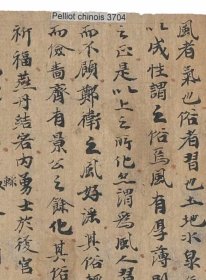 Pelliot chinois 3704
風者氣也俗者習也土地水泉氣
以成性謂之俗焉風有厚薄
之正是以上之所化名謂為風人習
而不顧鄭衛之風好淫其俗
而儉嗇齊有景公之餘化其俗
祈福燕丹結客內勇士於後宮